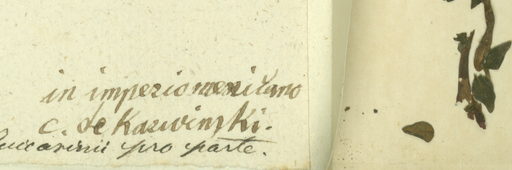 in imperio mexicano
c. de Karwinski.
Zuccarinii pro parte.